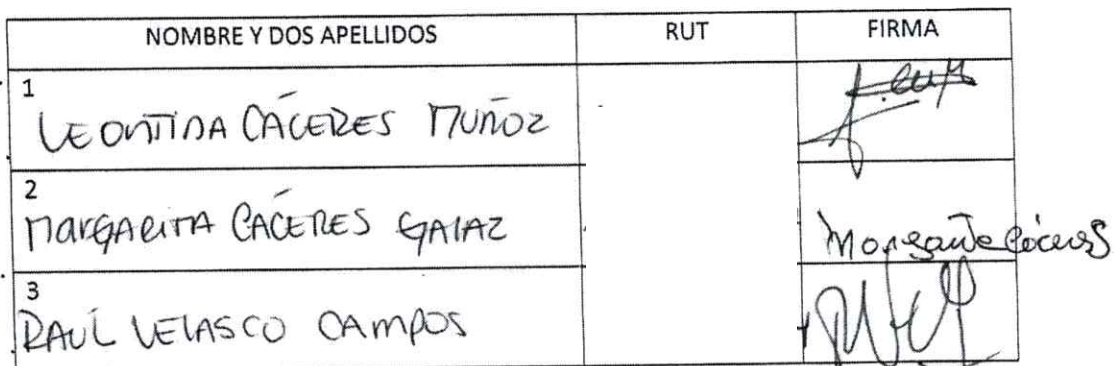 NOMBRE Y DOS APELLIDOS RUT FIRMA
1
LEONTINA CÁCERES MUÑOZ
2
MARGARITA CÁCERES GALAZ
Margarita Cáceres
3
RAÚL VELASCO CAMPOS